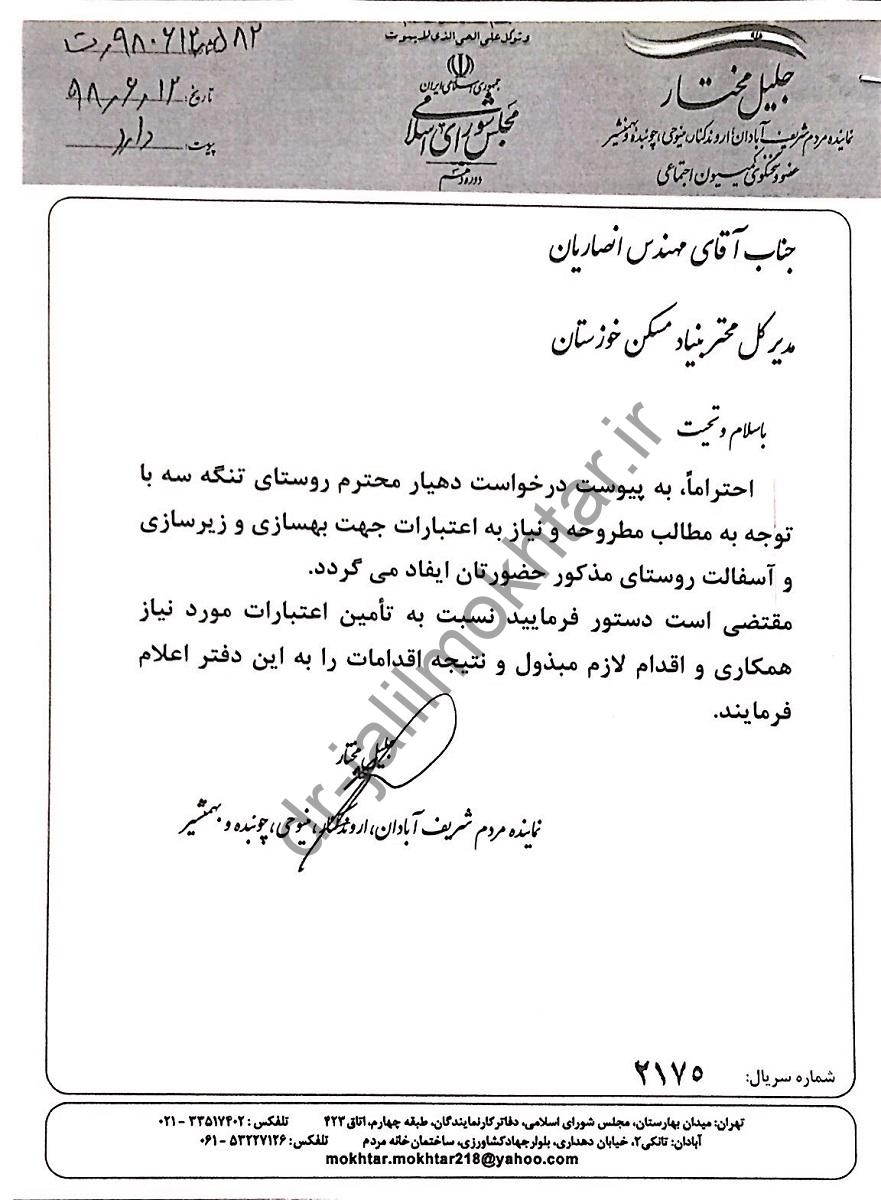 وتوکل علی الحی الذی لا یموت
جمهوری اسلامی ایران
مجلس شورای اسلامی
دوره دهم
جلیل مختار
نماینده مردم شریف آبادان، اروندکنار، منیوحی، چوئبده و بهمنشیر
عضو و سخنگوی کمیسیون اجتماعی
تاریخ: ۹۸٫۶٫۱۲
پیوست: دارد
جناب آقای مهندس انصاریان
مدیر کل محتر بنیاد مسکن خوزستان
باسلام وتحیت
احتراماً، به پیوست درخواست دهیار محترم روستای تنگه سه با
توجه به مطالب مطروحه و نیاز به اعتبارات جهت بهسازی و زیرسازی
و آسفالت روستای مذکور حضورتان ایفاد می گردد.
مقتضی است دستور فرمایید نسبت به تأمین اعتبارات مورد نیاز
همکاری و اقدام لازم مبذول و نتیجه اقدامات را به این دفتر اعلام
فرمایند.
جلیل مختار
نماینده مردم شریف آبادان، اروندکنار، منیوحی، چوئبده و بهمنشیر
dr-jalilmokhtar.ir
شماره سریال: ۲۱۷۵
تهران: میدان بهارستان، مجلس شورای اسلامی، دفاتر کار نمایندگان، طبقه چهارم، اتاق ۴۲۳ تلفکس: ۳۳۵۱۷۴۰۲ - ۰۲۱
آبادان: تانکی۲، خیابان دهداری، بلوار جهادکشاورزی، ساختمان خانه مردم تلفکس: ۵۳۲۲۷۱۲۶ - ۰۶۱
mokhtar.mokhtar218@yahoo.com